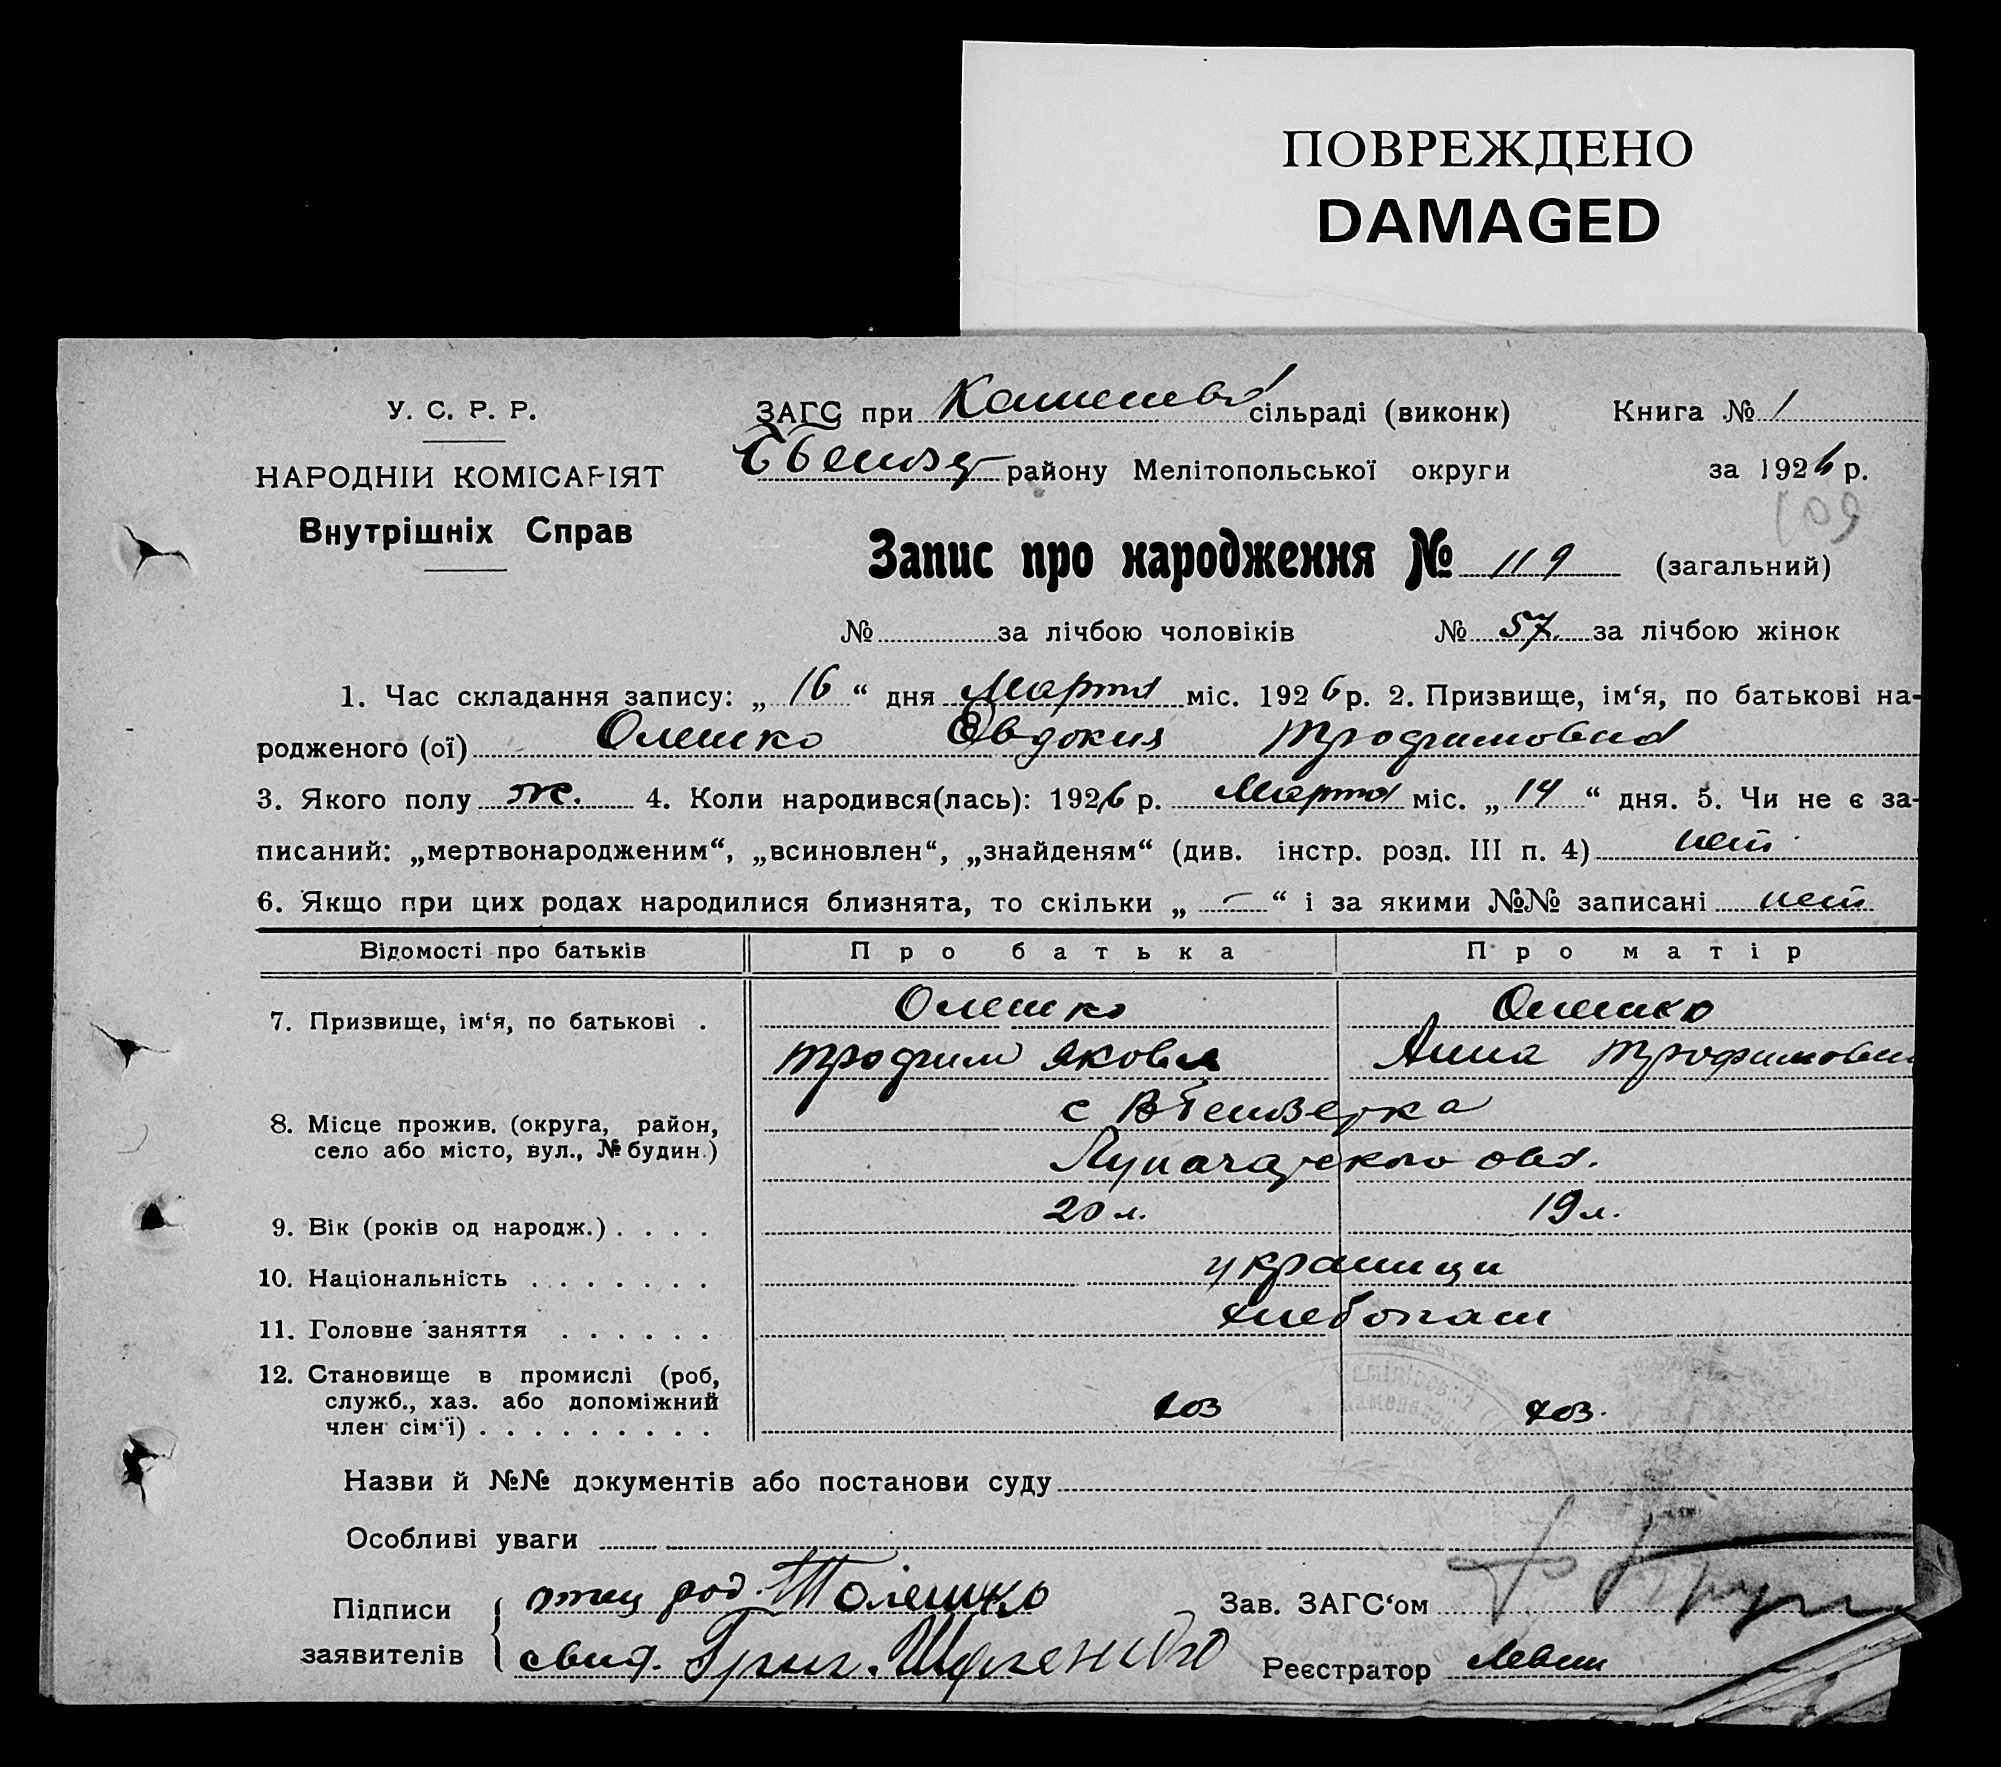 ПОВРЕЖДЕНО
DAMAGED
У. С. Р. Р.
НАРОДНІЙ КОМІСАРІЯТ
Внутрішніх Справ
ЗАГС при сільраді (виконк) Книга № 1
району Мелітопольської округи за 1926 р.
109
Запис про народження № 119 (загальний)
№ за лічбою чоловіків № 57 за лічбою жінок
1. Час складання запису: „ 16 “ дня Марта міс. 1926 р. 2. Призвище, ім‘я, по батькові на-
родженого (ої) Олешко Евдокия Трофимовна
3. Якого полу ж. 4. Коли народився(лась): 1926 р. Марта міс. „ 14 “ дня. 5. Чи не є за-
писаний: „мертвонародженим“, „всиновлен“, „знайденям“ (див. інстр. розд. III п. 4) нет
6. Якщо при цих родах народилися близнята, то скільки „ — “ і за якими №№ записані нет
Відомості про батьків Про батька Про матір
7. Призвище, ім‘я, по батькові . Олешко Олешко
Трофим Яковл Анна Трофимовн
8. Місце прожив. (округа, район, с
село або місто, вул., № будин.)
9. Вік (років од народж.) . . . . 20 л. 19 л.
10. Національність . . . . . . . украинци
11. Головне заняття . . . . . . хлебопаш
12. Становище в промислі (роб,
служб., хаз. або допоміжний
член сім‘ї) . . . . . . . . . хоз хоз.
Назви й №№ документів або постанови суду
Особливі уваги
Підписи отец род. Т Олешко Зав. ЗАГС‘ом
заявителів свид. Григ. Реєстратор